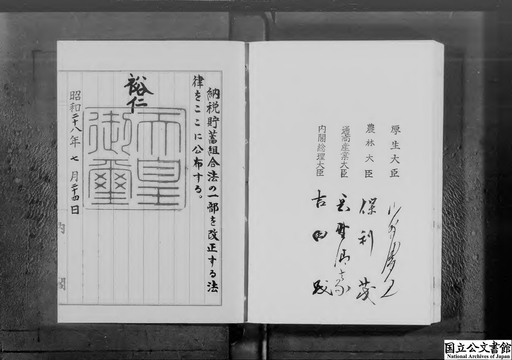 厚生大臣
農林大臣 保利茂
通商産業大臣 岡野清豪
内閣総理大臣 吉田茂
納税貯蓄組合法の一部を改正する法
律をここに公布する。
裕仁
天皇
御璽
昭和二十八年七月二十四日
内閣
国立公文書館
National Archives of Japan